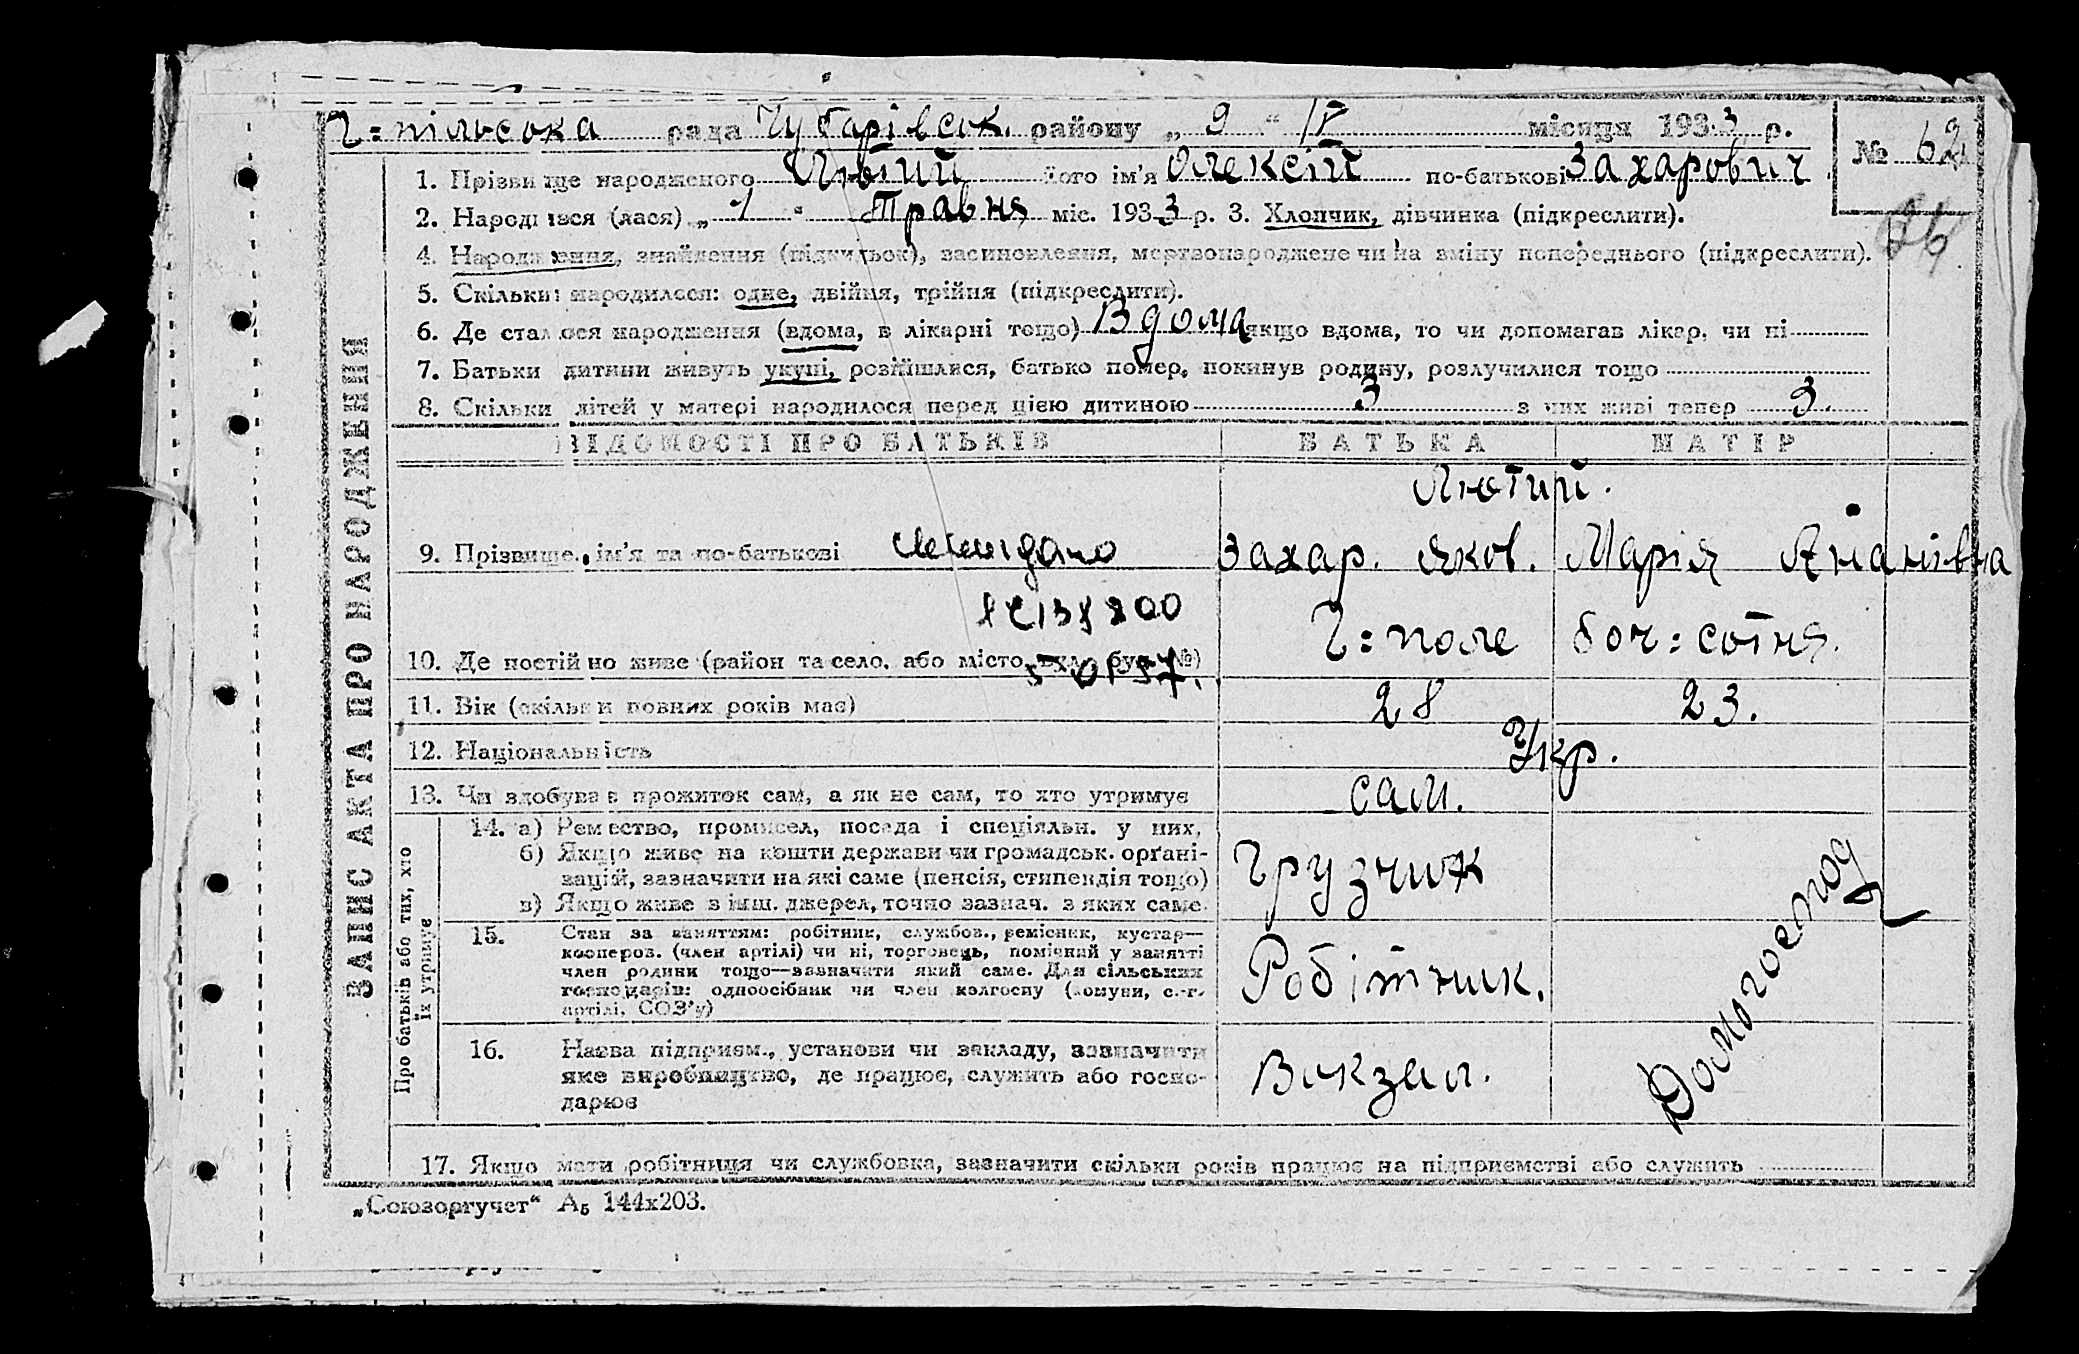 Г=пільська рада Чубарівськ. району „ 9 “ IV місяця 1933 р.
№ 62
1. Прізвище народженого Лютий його ім'я Олексій по-батькові Захарович
2. Народився (лася) „ 1 “ Травня міс. 1933 р. 3. Хлопчик, дівчинка (підкреслити).
26
4. Народження, знайдення (підкидьок), засиновлення, мертвонароджене чи на зміну попереднього (підкреслити).
5. Скільки народилося: одне, двійня, трійня (підкреслити).
6. Де сталося народження (вдома, в лікарні тощо) Вдома якщо вдома, то чи допомагав лікар, чи ні
7. Батьки дитини живуть укупі, розійшлися, батько помер, покинув родину, розлучилися тощо
8. Скільки дітей у матері народилося перед цією дитиною 3 з них живі тепер 3.
ЗАПИС АКТА ПРО НАРОДЖЕННЯ
ВІДОМОСТІ ПРО БАТЬКІВ БАТЬКА МАТІР
Лютий.
9. Прізвище, ім'я та по-батькові Захар. Яков. Марія Ананівна
Г=поле боч=сотня.
10. Де постійно живе (район та село, або місто, вул., буд. №)
11. Вік (скільки повних років має) 28 23.
12. Національність Укр.
13. Чи здобував прожиток сам, а як не сам, то хто утримує сам.
Про батьків або тих, хто їх утримує
14. а) Ремество, промисел, посада і спеціяльн. у них,
б) Якщо живе на кошти держави чи громадськ. орґані-
зацій, зазначити на які саме (пенсія, стипендія тощо)
в) Якщо живе з інш. джерел, точно зазнач. з яких саме.
Грузчик
Домогоспод
15. Стан за заняттям: робітник, службов., ремісник, кустар—
коопероз. (член артілі) чи ні, торговець, помічний у занятті
член родини тощо—зазначити який саме. Для сільських
господарів: одноосібник чи член колгоспу (комуни, с.-г.
артілі, СОЗ'у)
Робітник.
16. Назва підприєм., установи чи закладу, зазначити
яке виробництво, де працює, служить або госпо-
дарює
Вокзал.
17. Якщо мати робітниця чи службовка, зазначити скільки років працює на підприємстві або служить
„Союзоргучет“ А5 144х203.